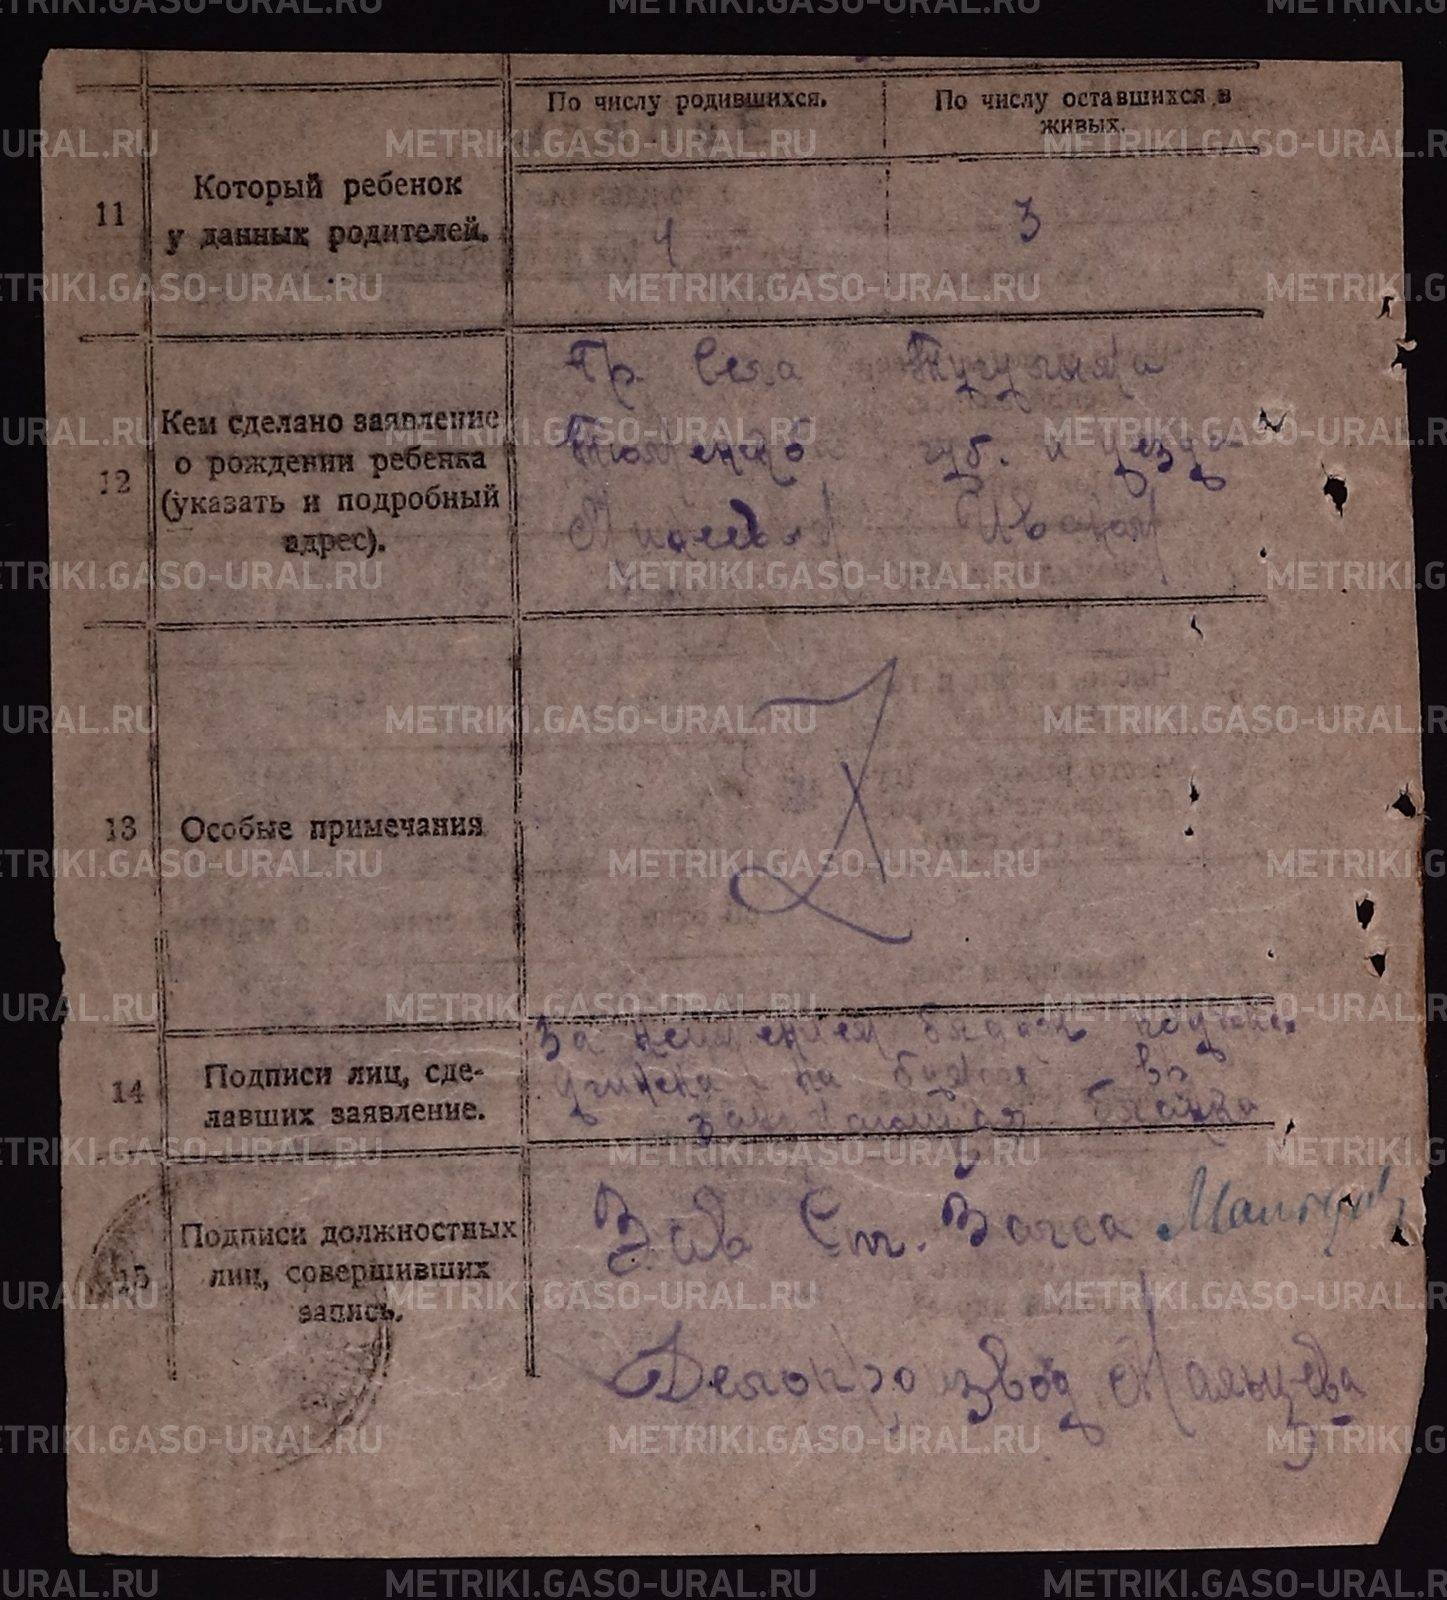 По числу родившихся.
По числу оставшихся в
живых.
11
Который ребенок
у данных родителей.
4
3
12
Кем сделано заявление
о рождении ребенка
(указать и подробный
адрес).
Гр. Села Тугулыма
Тюменской губ. и уезда
Иваном
13
Особые примечания
Z
14
Подписи лиц, сде-
лавших заявление.
За неимением бланок
учинена на
бланка
15
Подписи должностных
лиц, совершивших
запись.
Зав Ст. Загса
Делопроизвод Мальцева
METRIKI.GASO-URAL.RU